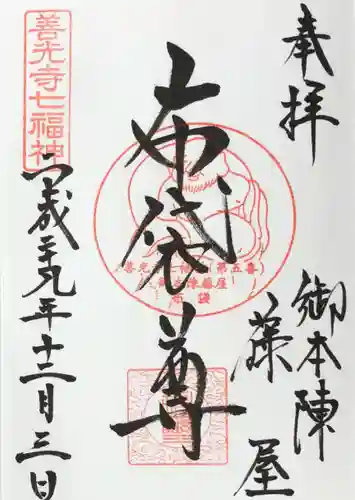 奉拝
御本陣
藤屋
布袋尊
善光寺七福神
平成二十九年十二月三日
善光寺七福神(第五番)
御本陣藤屋
布袋